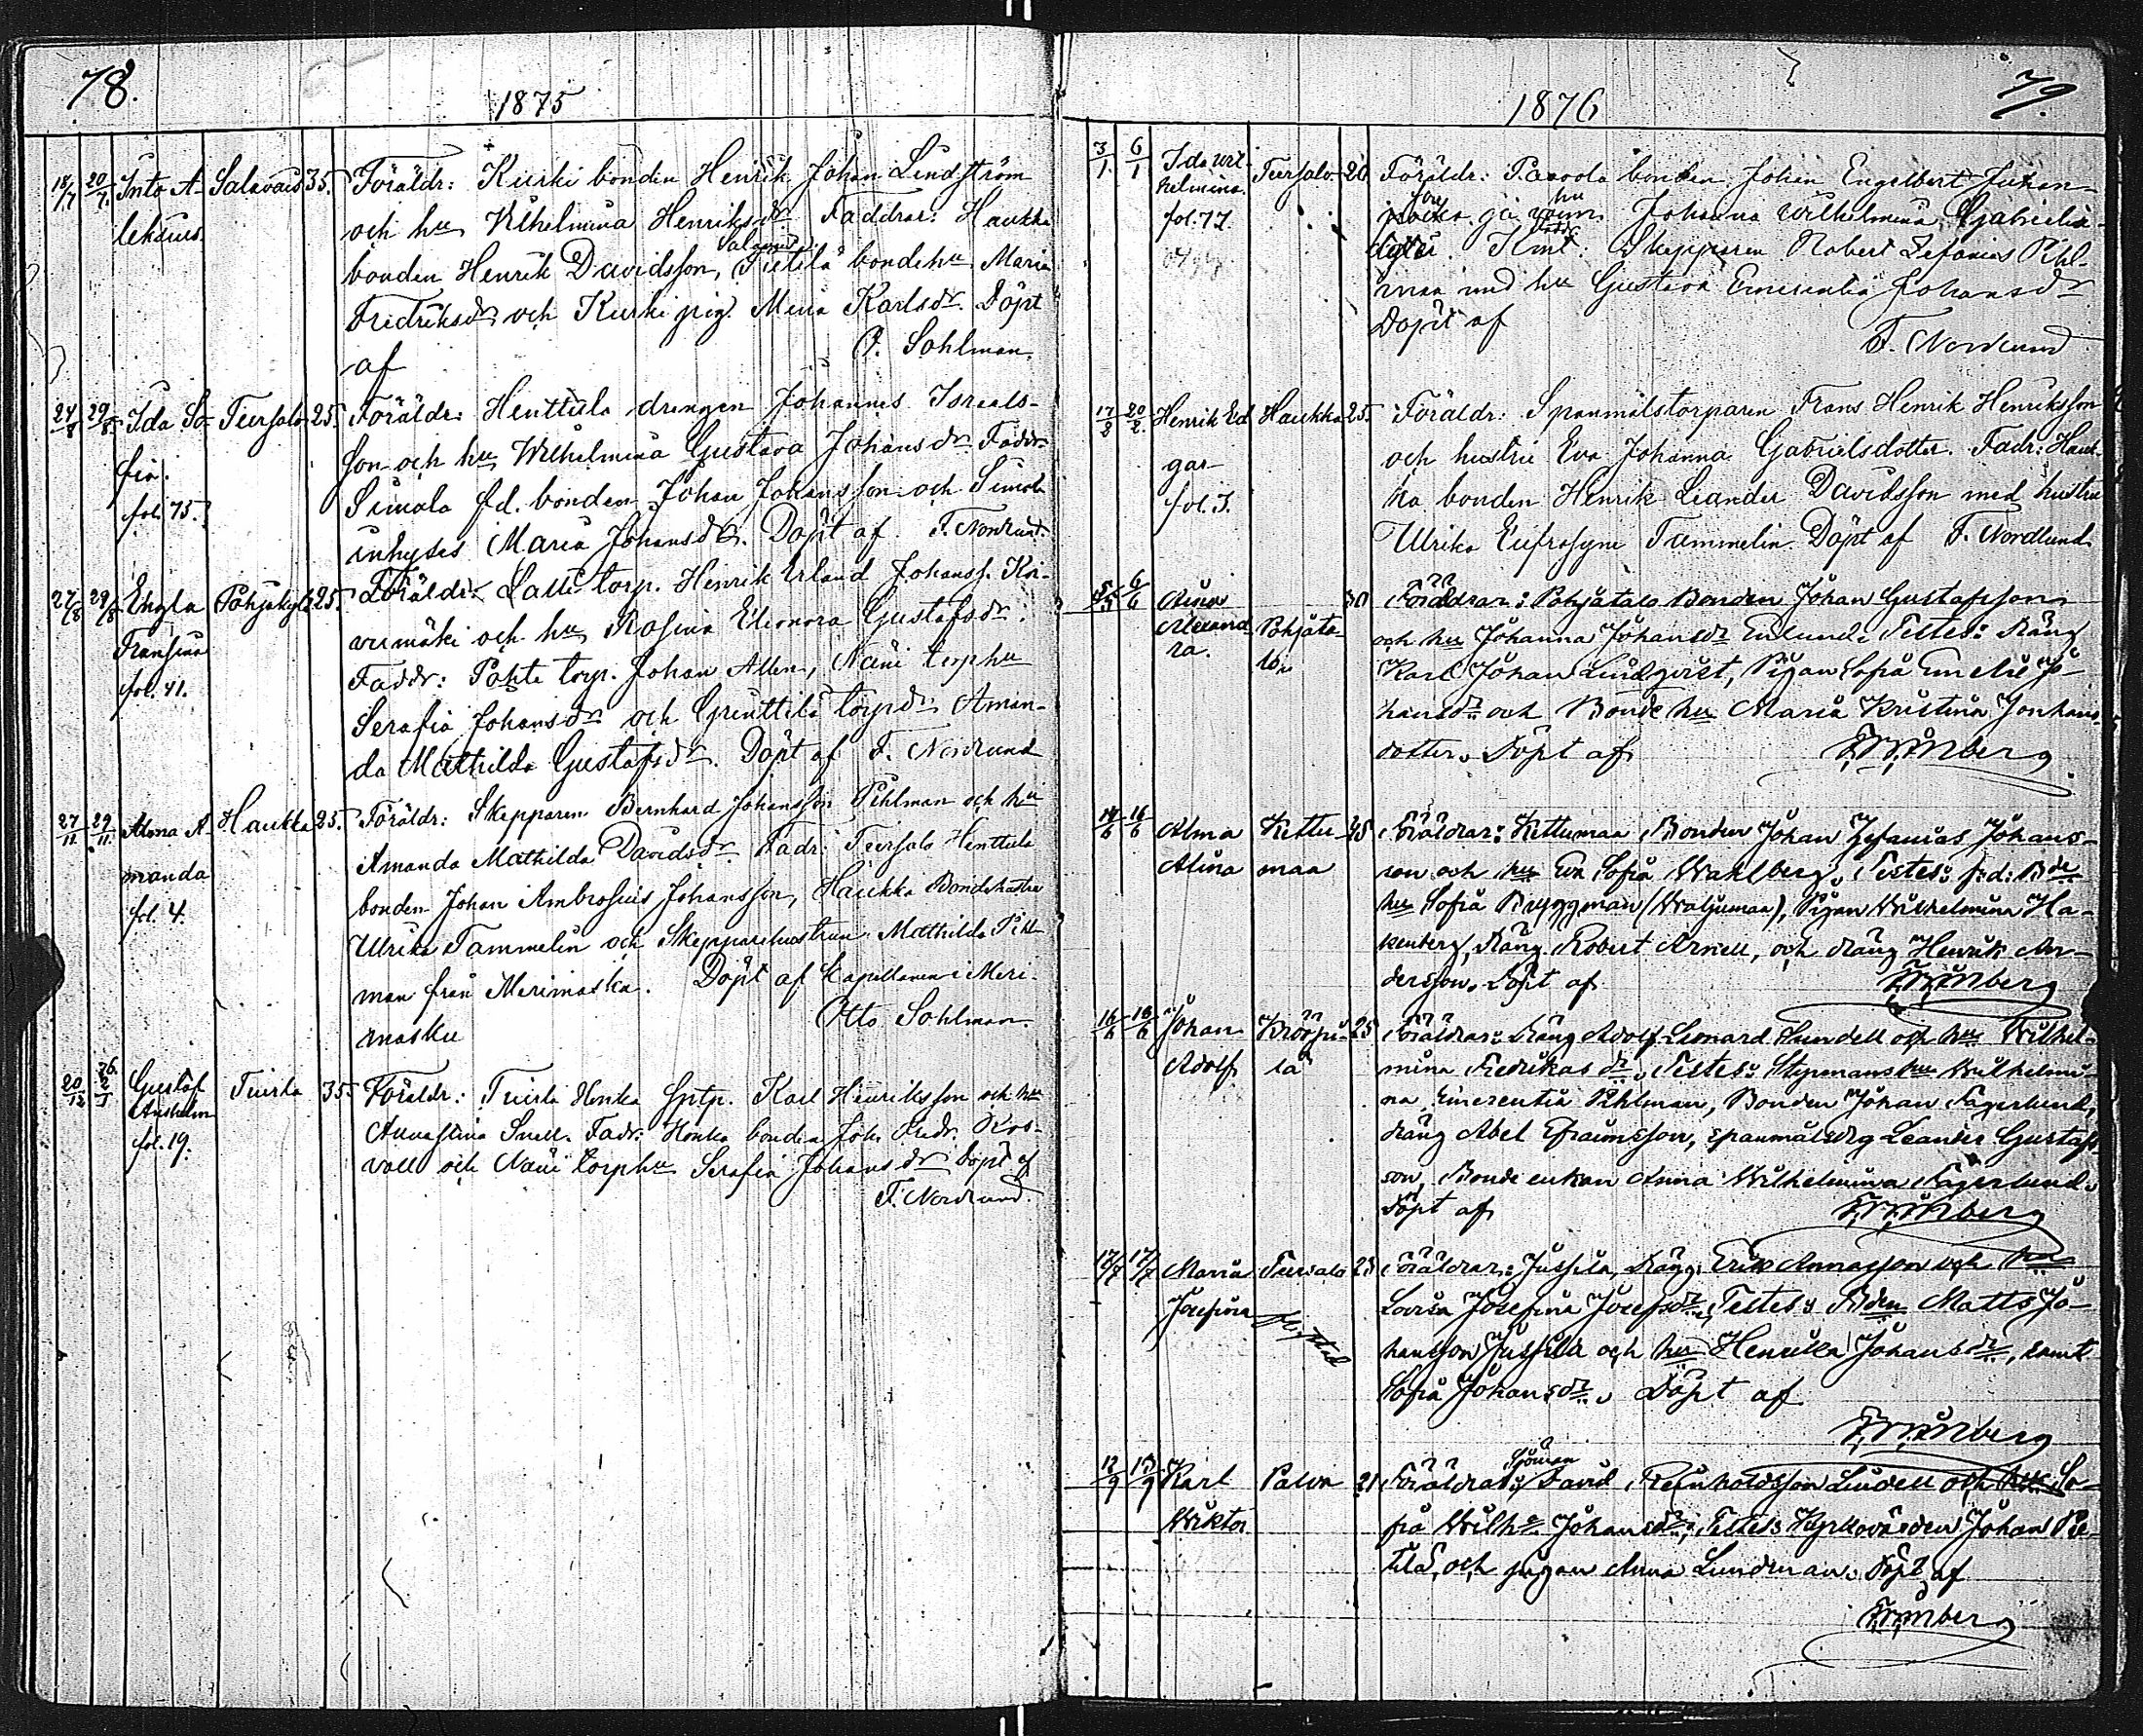 78.
1875
18/7 20/7. Into A- Salavais 35. Föräldr: Kurki bonden Henrik Johan Lindström
leksius. och hu Wilhelmina Henriksdr Faddrar: Haukka
Salavais
bonden Henrik Davidsson, Pietilä bondehu Maria
Fredriksdr och Kurki pig. Mina Karlsdr. Döpt
af O. Sohlman.
24/8 29/8. Ida So- Teersalo 25. Föräldr: Henttula drengen Johannes Israels-
fia. son och hu Wilhelmina Gustava Johansdr. Faddr
fol. 75. Simola fd. bonden Johan Johansson och Simola
inhyses Maria Johansdr. Döpt af F. Nordlund.
27/8 29/8 Engla Pohjakylä 25. Föräldr. Latti torp. Henrik Erland Johanss. Koi-
Fransina vumäki och hu Rosina Eleonora Gustafsdr:
fol. 41. Faddr: Pohte torp. Johan Allen, Näni torphu
Serafia Johansdr och Gruttila torpdr Aman-
da Mathilda Gustafsdr. Döpt af F. Nordlund
27/11 29/11. Alma A- Haukka 25. Föräldr: Skepparen Bernhard Johansson Pihlman och hu
manda Amanda Mathilda Davidsdr. Fadr: Teersalo Henttula
fol. 4. bonden Johan Ambrosius Johansson, Haukka Bondehustru
Ulrika Tammelin och Skepparehustrun Mathilda Pihl-
man från Merimasku. Döpt af kapellanen i Meri-
masku Otto Sohlman.
20/12 26/1 Gustaf Tuirla 35. Föräldr: Tuirla Honka Sptp. Karl Henriksson och hu
Anshelm Annastina Snell. Fadr: Honka bonden Joh. Fredr. Kos-
fol. 19. voll och Näni torphu Serafia Johansdr Döpt af
F. Nordlund
79.
1876
3/1. 6/1 Ida Wil- Teersalo 26 Föräldr: Paavola bonden Johan Engelbert Juhan-
helmina. hu Johanna Wilhelmina Gabriels-
fol. 77. dotter. Skepparen Robert Zefanias Pihl-
man med hu Gustava Emerentia Johansdr
Döpt af
F. Nordlund
17/2 20/2. Henrik Ed- Haukka 25. Föräldr: Spanmålstorparen Frans Henrik Henriksson
gar och hustru Eva Johanna Gabrielsdotter. Fadr: Hauk-
fol. 3. ka bonden Henrik Leander Davidsson med hustru
Ulrika Eufrosyne Tammelin. Döpt af F. Nordlund
6/6 Aina 30 Föräldrar: Pohjatalo Bonden Johan Gustafsson
Alexand- Pohjata- och hu Johanna Johansdr Enlund. Testes: Dräng
ra. lo. Karl Johan Lindqvist, Pigan Sofia Emelie Jo-
hansdr och Bonde hu Maria Kristina Johans-
dotter. Döpt af
14/6 16/6 Alma Kettu- 45 Föräldrar: Kettumaa Bonden Johan Zefanias Johans-
Alina maa son och hu Eva Sofia Wahlberg. Testes: f.d. Bde
hu Sofia Bryggman (Waljumaa), Pigan Wilhelmina Ha-
kenberg, Dräng Robert Arnell, och dräng Henrik An-
dersson. Döpt af
16/6 18/6 Johan Krööpi- 25 Föräldrar: Dräng Adolf Leonard Sundell och hu Wilhel-
Adolf. lä mina Fredrikasdr. Testes: Styrmanshu Wilhelmi-
na Emerentia Pihlman, Bonden Johan Fagerlund,
dräng Abel Efraimsson, Leander Gustafs-
son, Bonde enkan Anna Wilhelmina Fagerlund.
Döpt af
17/7 17/7 Maria Teersalo 23 Föräldrar: Jussila, Dräng Erik Annasson och hu
Josefina Lovisa Josefina Josefsdr. Testes: Bden Matts Jo-
hansson Jussila och hu Henrika Johansdr, samt
Sofia Johansdr. Döpt af
Sjöman
12/9 13/9 Karl Palva 21 Föräldrar: David Reinholdsson Lindell och hu So-
Wiktor fia Wilha Johansdr, Testes: Kyrkovärden Johan Pie-
tilä, och pigan Anna Lundman. Döpt af